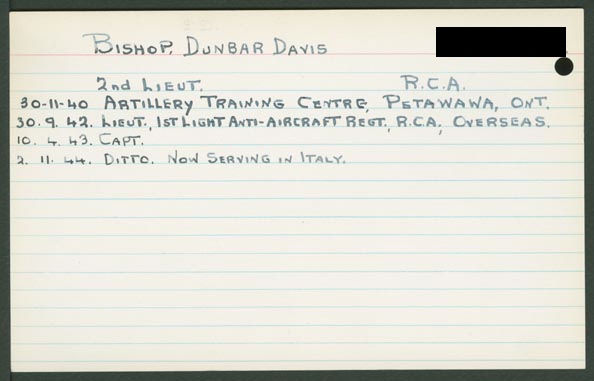 Bishop, Dunbar Davis
2nd Lieut. R.C.A.
30-11-40 Artillery Training Centre, Petawawa, Ont.
30.9.42. Lieut., 1st Light Anti-Aircraft Regt., R.C.A., Overseas.
10.4.43. Capt.
2.11.44. Ditto. Now Serving in Italy.